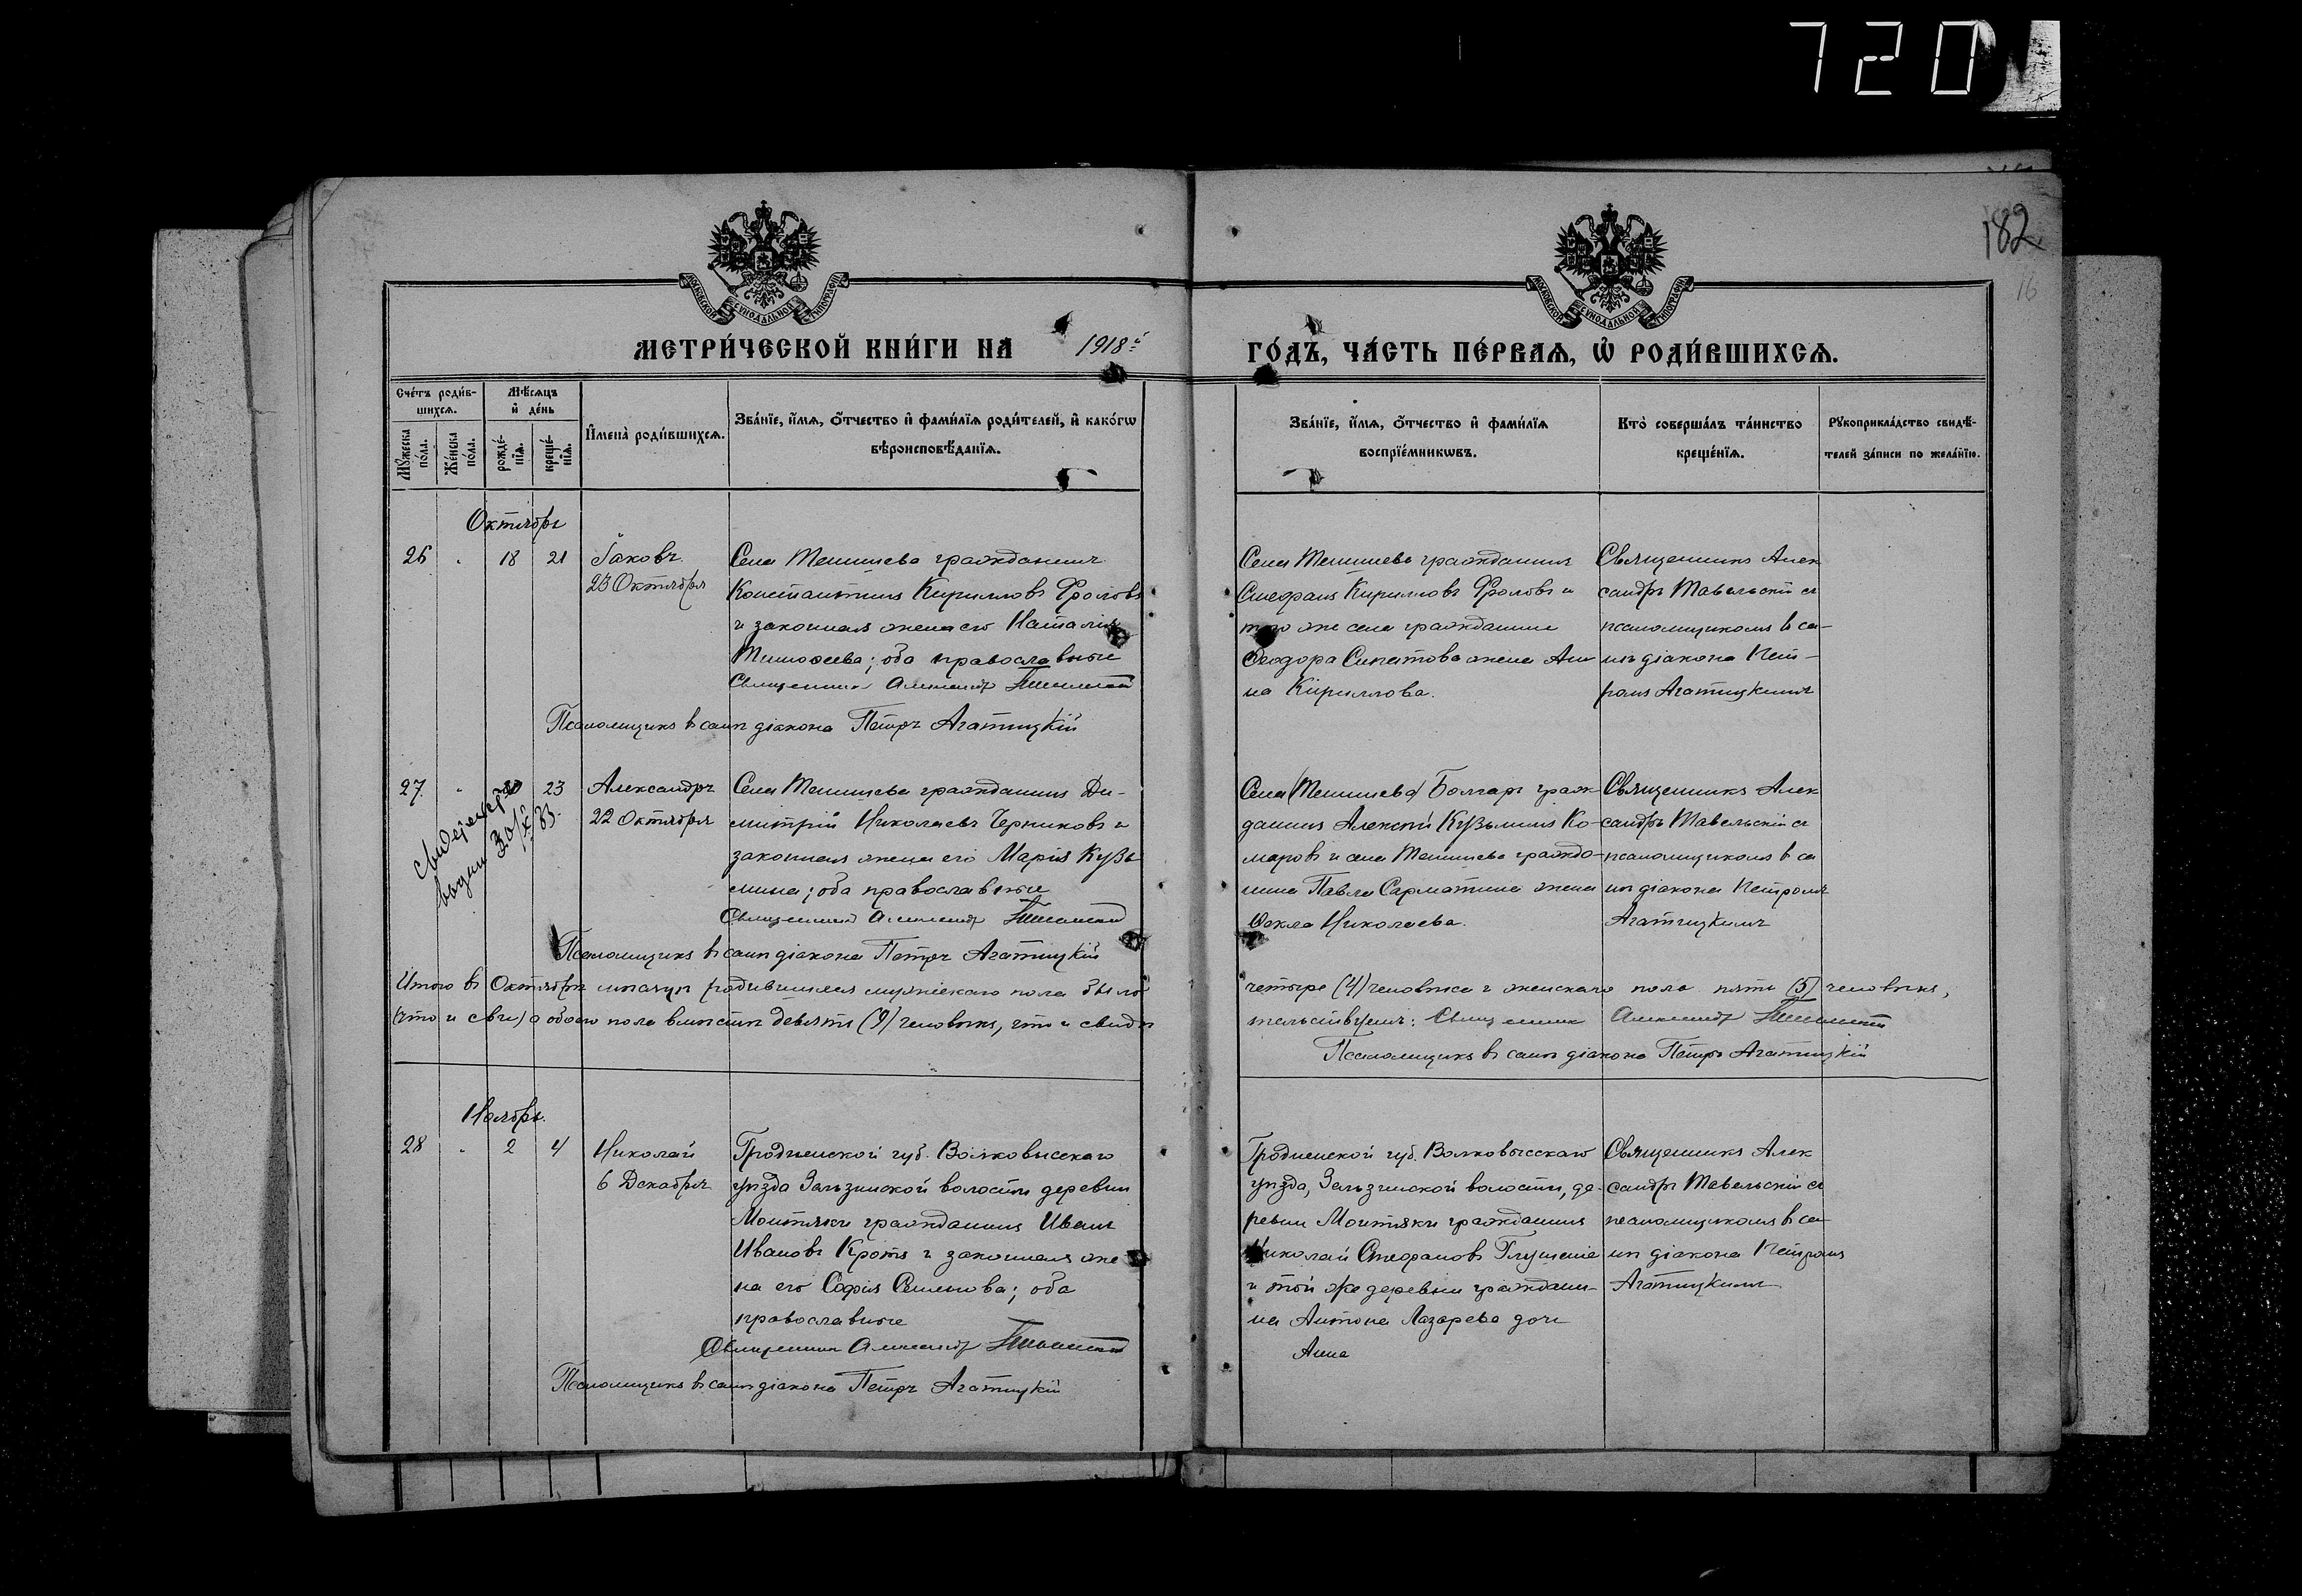 720
182
16
МОСКОВСКОЙ СѴНОДАЛЬНОЙ ТИПОГРАФІИ
МОСКОВСКОЙ СѴНОДАЛЬНОЙ ТИПОГРАФІИ
МЕТРИ́ЧЕСКОЙ КНИ́ГИ НА 1918й ГО́ДЪ, ЧА́СТЬ ПЕ́РВАѦ, Ѡ҆ РОДИ́ВШИХСѦ.
Сче́тъ роди́в-
шихсѧ.
Мꙋ́жеска по́ла.
Же́нска по́ла.
Мѣ́сѧцъ
и҆ де́нь
рожде́-
нїѧ.
креще́-
нїѧ.
И҆мена̀ роди́вшихсѧ.
Зва́нїе, и҆́мѧ, ѻ҆́тчество и҆ фами́лїѧ роди́телей, и҆ како́гѡ
вѣроисповѣ́данїѧ.
Зва́нїе, и҆́мѧ, ѻ҆́тчество и҆ фами́лїѧ
воспрїе́мникѡвъ.
Кто̀ соверша́лъ та́инство
креще́нїѧ.
Рꙋкоприкла́дство свидѣ́-
телей за́писи по жела́нїю.
Октябрь
26 " 18 21 Іаковъ
23 Октября
Села Тенишева гражданинъ
Константинъ Кирилловъ Фроловъ
и законная жена его Наталія
Тимоѳеева; оба православные
Священникъ Александръ
Псаломщикъ в санѣ діакона Петръ Агатицкій
Села Тенишева гражданинъ
Стефанъ Кирилловъ Фроловъ и
того же села гражданина
Ѳеодора Сипатова жена Ан-
на Кириллова.
Священникъ Алек
сандръ Тавельскій съ
псаломщикомъ в са-
нѣ діакона Пет-
ромъ Агатицкимъ
27. " 20 23 Александръ
22 Октября
выдан 30/X 83.
Села Тенишева гражданинъ Ди-
митрій Николаевъ Черниковъ и
законная жена его Марія Кузь
мина; оба православные
Священникъ Александръ
Псаломщикъ в санѣ діакона Петръ Агатицкій
Села (Тенишева) Болгаръ граж
данинъ Алексѣй Кузьминъ Ко-
маровъ и села Тенишева граждa-
нина Павла Сарматина жена
Ѳекла Николаева.
Священникъ Алек
сандръ Тавельскій съ
псаломщикомъ в са
нѣ діакона Петромъ
Агатицкимъ
Итого въ Октябрѣ мѣсяцѣ родившихся мужескаго пола было четыре (4) человѣка и женскаго пола пять (5) человѣкъ,
(что и сви) а обоего пола вмѣстѣ девять (9) человѣкъ, что и свидѣ тельствуемъ: Священникъ Александръ
Псаломщикъ в санѣ діакона Петръ Агатицкій
Ноябрь.
28 " 2 4 Николай
6 Декабря
Гродненской губ. Волковысскаго
уѣзда Зельзинской волости деревни
Монтяки гражданинъ Иванъ
Ивановъ Кротъ и законная же
на его Софія Семенова; оба
православные
Священникъ Александръ
Псаломщикъ в санѣ діакона Петръ Агатицкій
Гродненской губ. Волковысскаго
уѣзда, Зельзинской волости, де-
ревни Монтяки гражданинъ
Николай Стефановъ
и той же деревни граждани-
на Антона Лазарева дочь
Анна
Священникъ Алек
сандръ Тавельскій съ
псаломщикомъ в са-
нѣ діакона Петромъ
Агатицкимъ